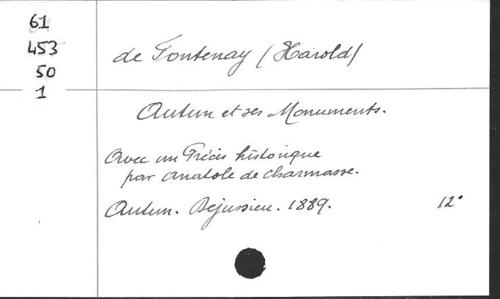 61
453
50
1
de Fontenay (Harold)
Autun et ses Monuments.
Avec un Précis historique
par Anatole de Charmasse.
Autun. Dejussieu. 1889. 12°